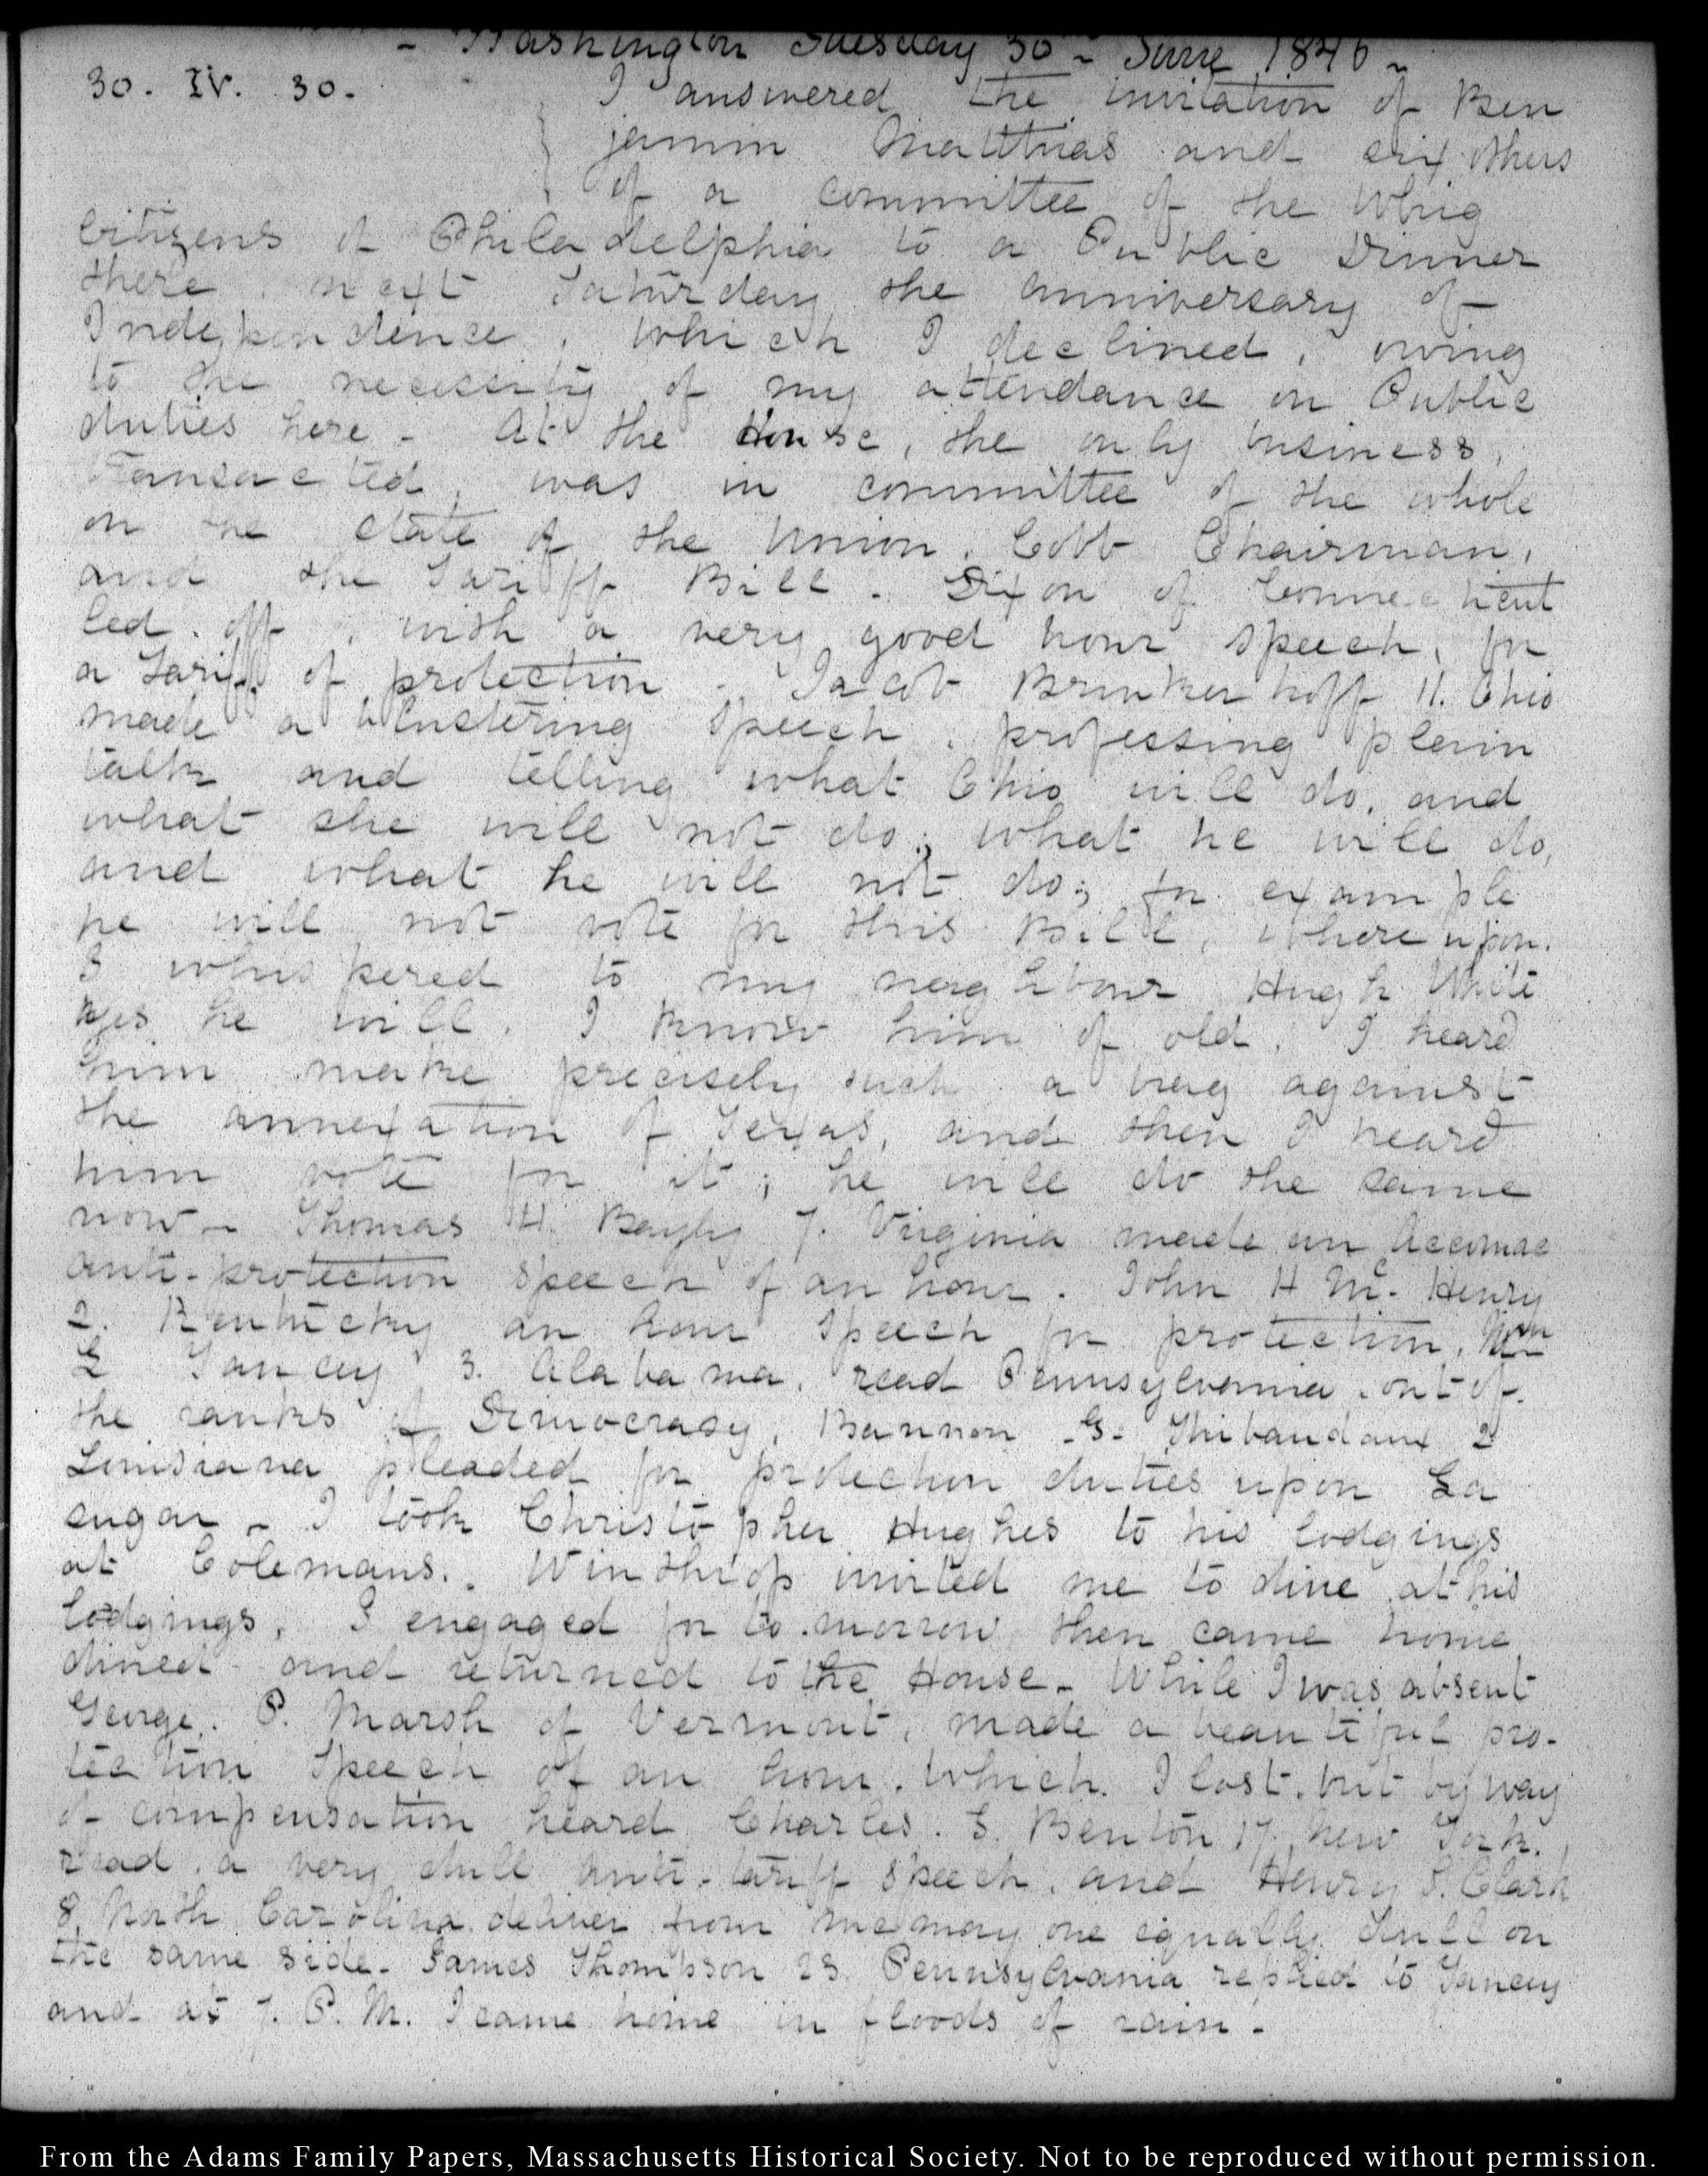 - Washington Tuesday 30 - June 1846 -
30. IV. 30.
I answered the invitation of Ben
jamin Matthias and six others
of a committee of the Whig
Citizens of Philadelphia to a Public Dinner
there, next Saturday the anniversary of
Independence, which I declined, owing
to the necessity of my attendance on Public
duties here - At the House, the only business,
transacted, was in committee of the whole
on the state of the Union, Cobb Chairman,
and the Tariff Bill. Dixon of Connecticut
led off, with a very good hour speech, for
a Tariff of protection - Jacob Brinkerhoff 11. Ohio
made a blustering speech, professing plain
talk and telling what Ohio will do, and
what she will not do; what he will do,
and what he will not do; for example
he will not vote for this Bill, whereupon.
I whispered to my neighbour Hugh White
yes he will. I know him of old. I heard
him make precisely such a brag against
the annexation of Texas, and then I heard
him vote for it; he will do the same
now - Thomas H. Bayly 7. Virginia made an Accomac
anti-protection speech of an hour. John H Mc. Henry
2. Kentucky an hour speech for protection, Wm
L Yancey 3. Alabama, read Pennsylvania out of
the ranks of Democracy, Bannon G. Thibaudaux 2
Louisiana pleaded for protection duties upon La
sugar - I took Christopher Hughes to his lodgings
at Colemans. Winthrop invited me to dine at his
lodgings, I engaged for to.morrow, then came home
dined and returned to the House - While I was absent
George. P. Marsh of Vermont, made a beautiful pro-
tection speech of an hour. which. I lost. but by way
of compensation heard Charles. S. Benton 17. New York.
read, a very dull anti-tariff speech, and Henry S. Clark
8. North Carolina deliver from memory one equally dull on
the same side - James Thompson 23. Pennsylvania replied to Yancey
and at 7. P. M. I came home in floods of rain -
From the Adams Family Papers, Massachusetts Historical Society. Not to be reproduced without permission.